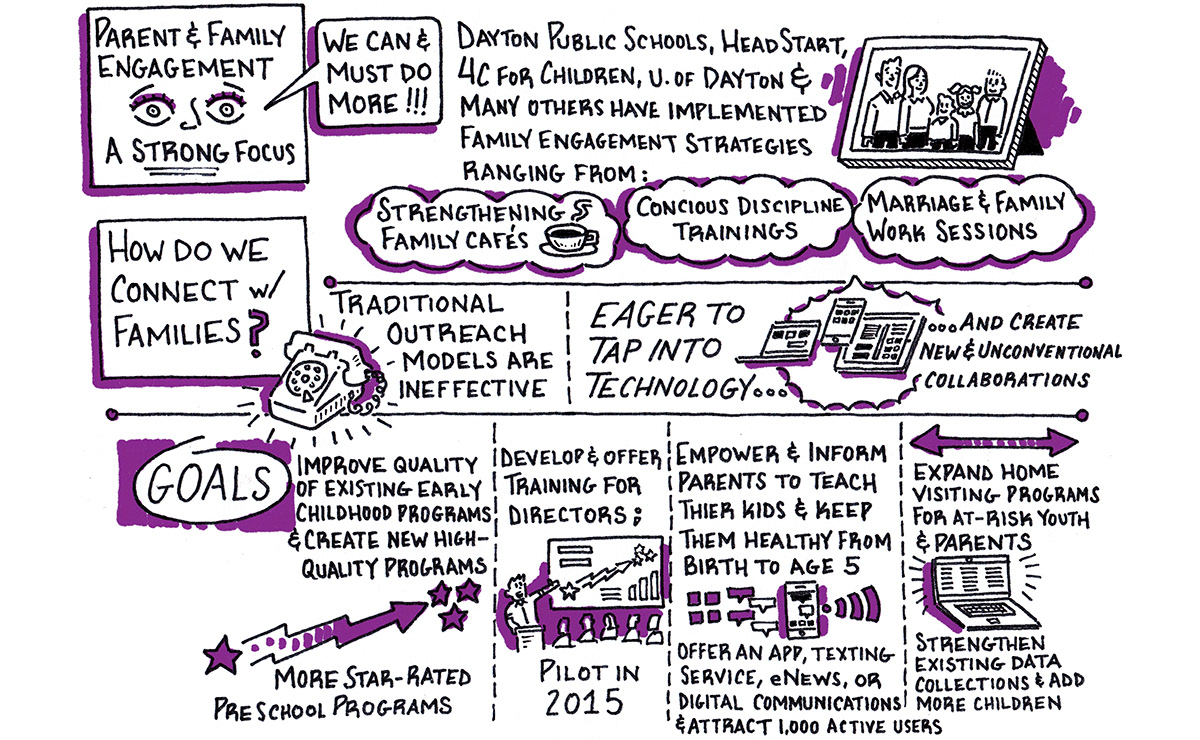 PARENT & FAMILY
ENGAGEMENT
A STRONG FOCUS
WE CAN &
MUST DO
MORE!!!
DAYTON PUBLIC SCHOOLS, HEAD START,
4C FOR CHILDREN, U. OF DAYTON &
MANY OTHERS HAVE IMPLEMENTED
FAMILY ENGAGEMENT STRATEGIES
RANGING FROM:
STRENGTHENING
FAMILY CAFÉS
CONCIOUS DISCIPLINE
TRAININGS
MARRIAGE & FAMILY
WORK SESSIONS
HOW DO WE
CONNECT W/
FAMILIES?
TRADITIONAL
OUTREACH
MODELS ARE
INEFFECTIVE
EAGER TO
TAP INTO
TECHNOLOGY...
...AND CREATE
NEW & UNCONVENTIONAL
COLLABORATIONS
GOALS
IMPROVE QUALITY
OF EXISTING EARLY
CHILDHOOD PROGRAMS
& CREATE NEW HIGH-
QUALITY PROGRAMS
MORE STAR-RATED
PRESCHOOL PROGRAMS
DEVELOP & OFFER
TRAINING FOR
DIRECTORS;
PILOT IN
2015
EMPOWER & INFORM
PARENTS TO TEACH
THIER KIDS & KEEP
THEM HEALTHY FROM
BIRTH TO AGE 5
OFFER AN APP, TEXTING
SERVICE, eNEWS, OR
DIGITAL COMMUNICATIONS
& ATTRACT 1,000 ACTIVE USERS
EXPAND HOME
VISITING PROGRAMS
FOR AT-RISK YOUTH
& PARENTS
STRENGTHEN
EXISTING DATA
COLLECTIONS & ADD
MORE CHILDREN